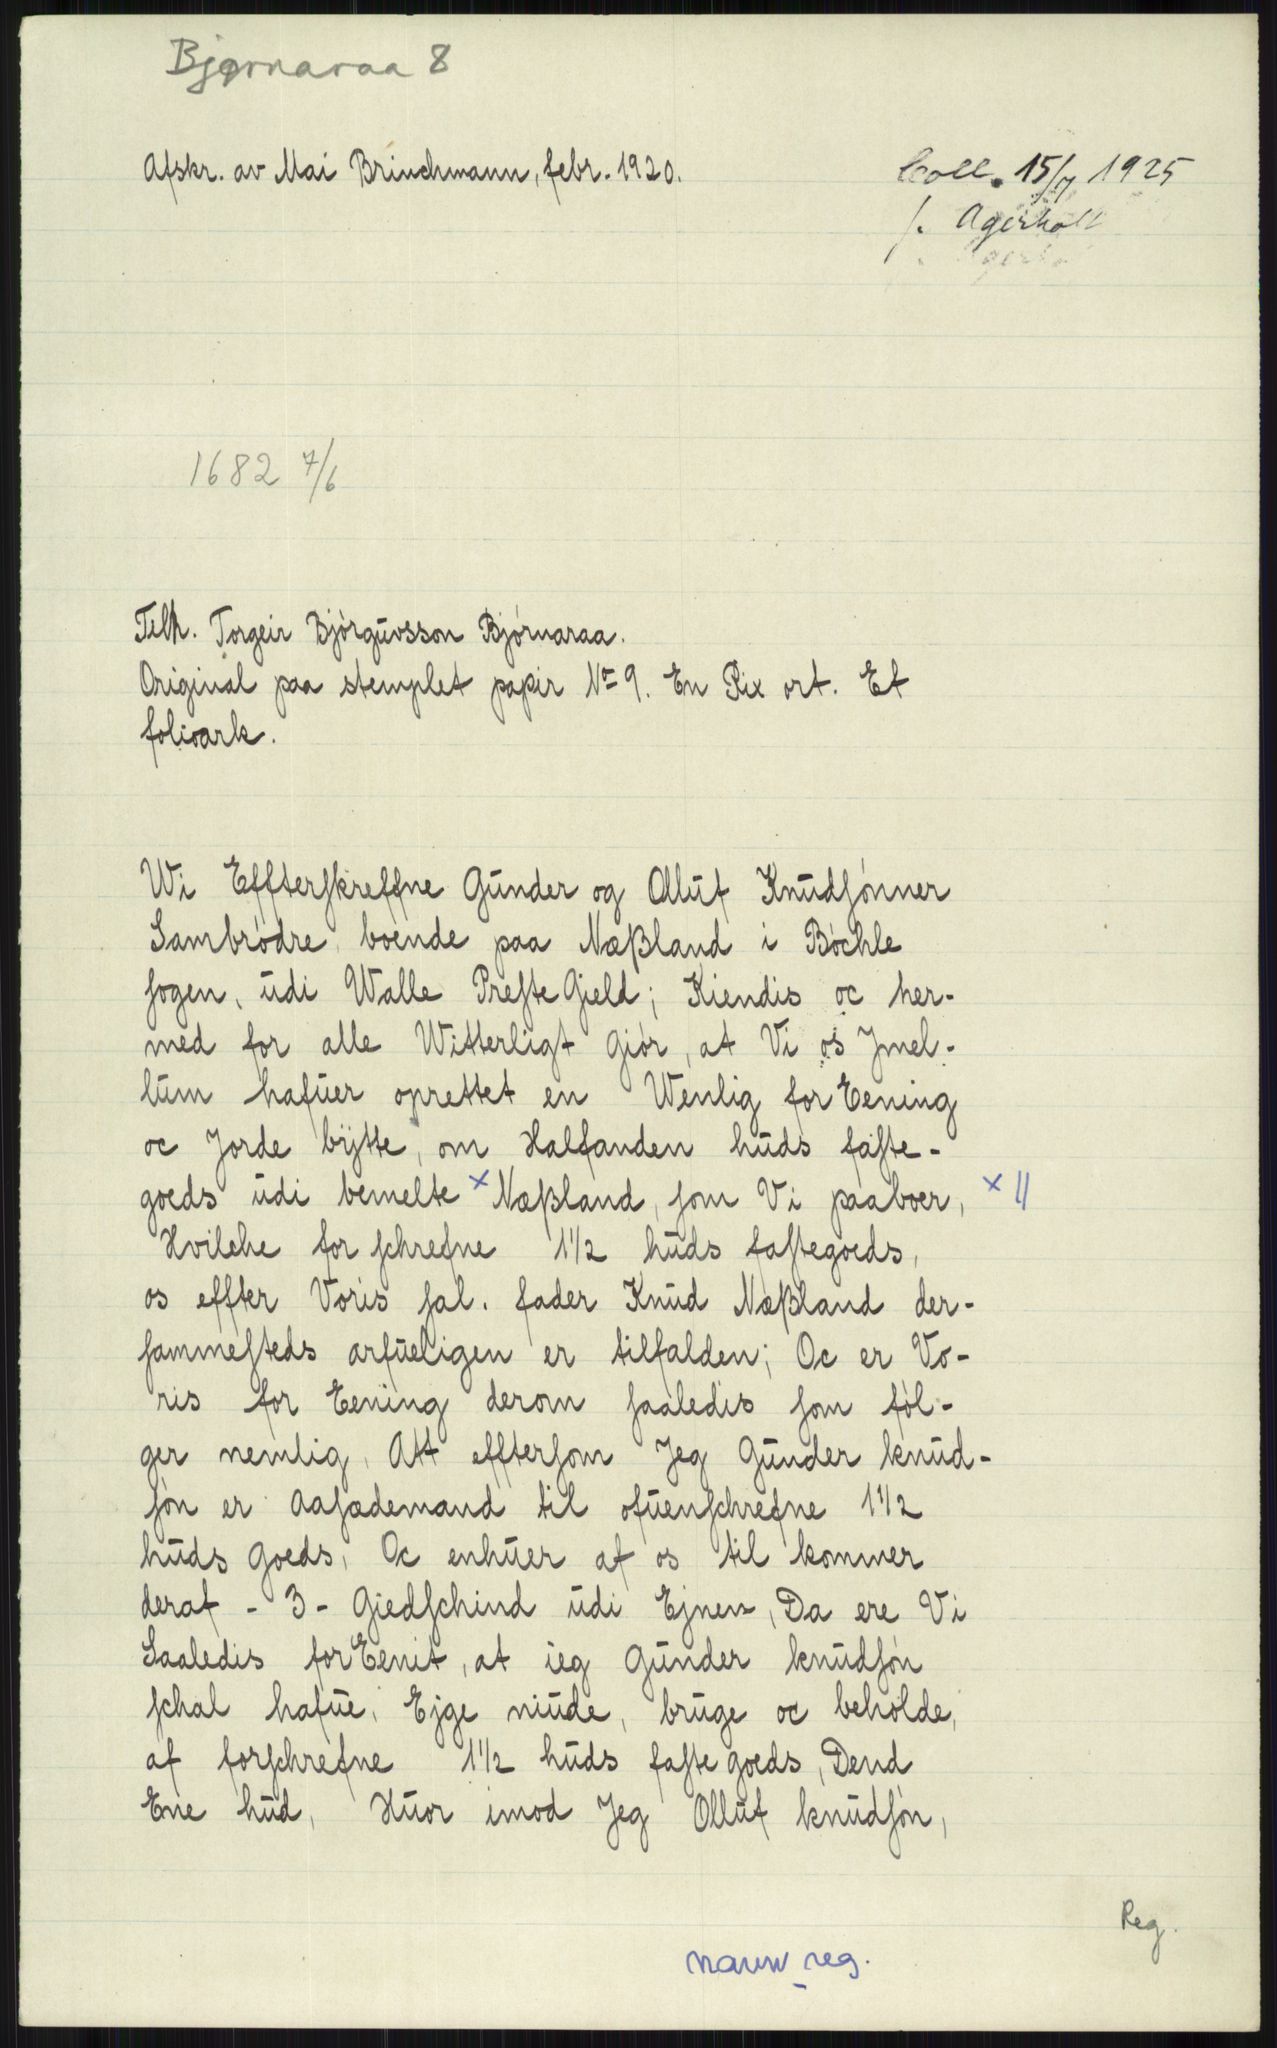 Bjørnaraa 8
Afskr. av Mai Brinchmann, febr. 1920.
Coll. 15/7 1925
J. Agerholt
1682 7/6
Tilh. Torgeir Bjørguvsson Bjørnaraa.
Original paa stemplet papir No 9. En Rix ort. Et
folioark.
Wi Effterſkreffne Gunder og Olluf Knudſønner
Sambrødre, boende paa Næβland i Bøchle
ſogen, udi Walle Preſte Gield; Kiendis oc her-
med for alle Witterligt giør, at Vi os Jmel-
lum hafuer oprettet en Wenlig for Eening
oc Jorde bÿtte, om Halfanden huds faſte-
goeds udi bemelte x Næβland, ſom Vi paaboer, x ||
Hvilche for ſchrefne 1 1/2 huds faſtegoeds,
os effter Voris ſal. fader Knud Næβland der-
ſammeſteds arfueligen er tilfalden; Oc er Vo-
ris for Eening derom ſaaledis ſom føl-
ger nemlig, Att effterſom Jeg Gunder knud-
ſøn er Aaſædemand til ofuenſchrefne 1 1/2
huds goeds, Oc enhuer af os til kommer
deraf - 3 - Giedſchind udi Ejnen, Da ere Vi
Saaledis for Eenit, at ieg Gunder knudſøn
ſchal hafue, Ejge niude, bruge oc beholde,
af forſchrefne 1 1/2 huds faſte goeds, Dend
Ene hud, Huor imod Jeg Olluf knudſøn,
Reg.
navn reg.